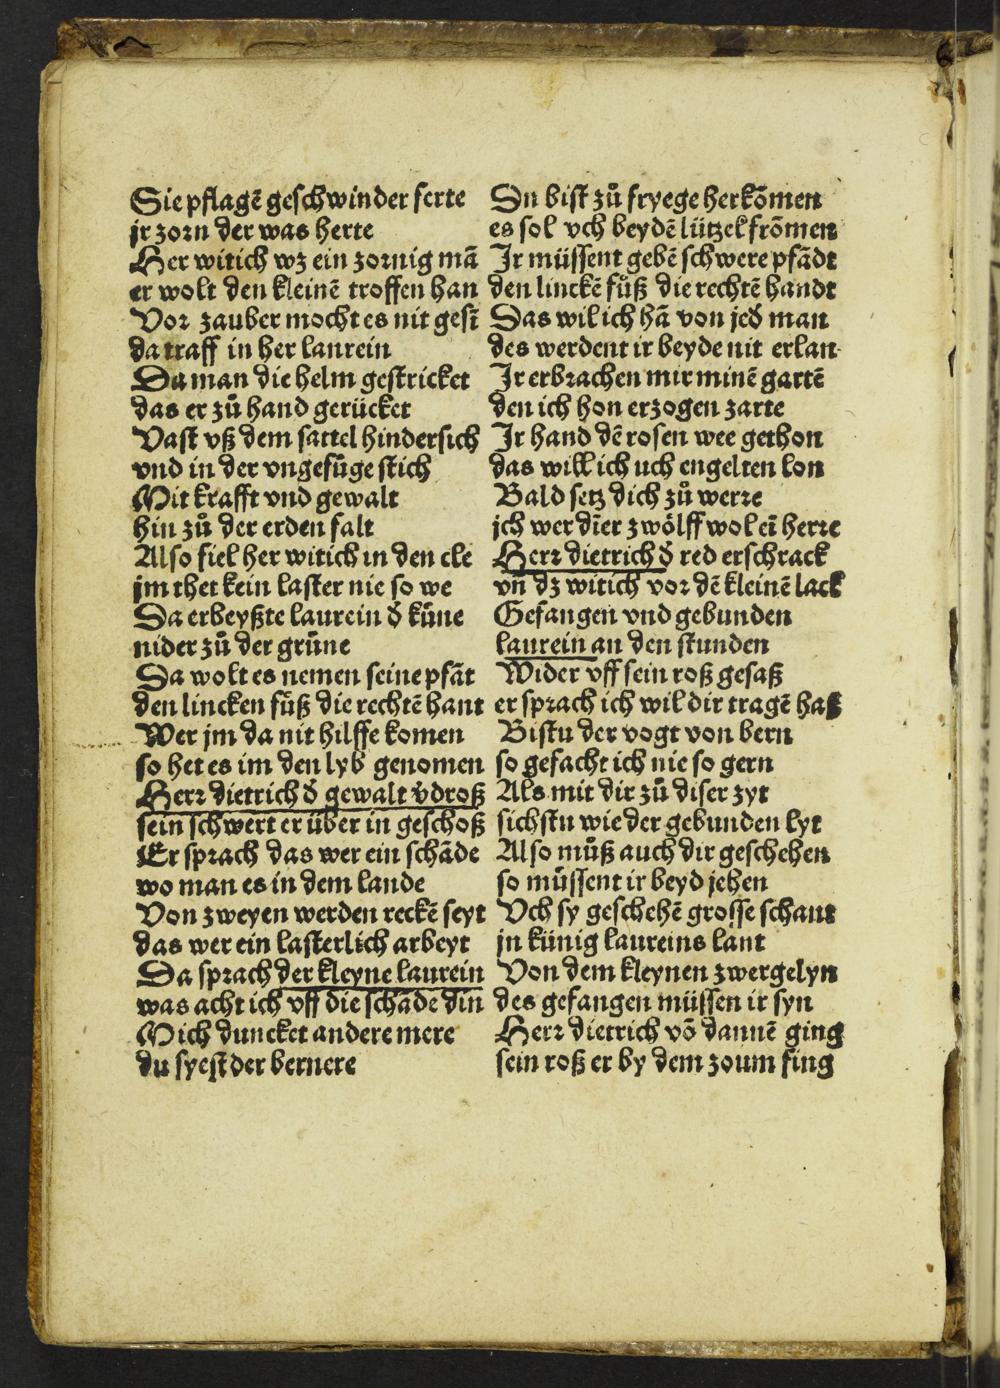 Sie pflagē geschwinder ferte
jr zorn der was herte
Her witich wz ein zornig mā
er wolt den kleinē troffen han
Vor zauber mocht es nit gesī
da traff in her laurein
Da man die helm gestricket
das er zů hand gerücket
Vast vß dem sattel hindersich
vnd in der vngefüge stich
Mit krafft vnd gewalt
hin zů der erden falt
Also fiel her witich in den cle
jm thet kein laster nie so we
Da erbeyßte laurein d̄ küne
nider zů der grüne
Da wolt es nemen seine pfāt
den lincken fůß die rechtē hant
Wer jm da nit hilffe komen
so het es im den lyb genomen
Herr dietrich d̄ gewalt v̄droß
sein schwert er über in geschoß
Er sprach das wer ein schāde
wo man es in dem lande
Von zweyen werden reckē seyt
das wer ein lasterlich arbeyt
Da sprach der kleyne laurein
was acht ich vff die schāde din
Mich duncket andere mere
du syest der bernere
Du bist zů fryege herkōmen
es sol vch beydē lützel frōmen
Ir müssent gebē schwere pfādt
den linckē fůß die rechtē handt
Das wil ich hā von jed̄ man
des werdent ir beyde nit erlan
Ir erbrachen mir minē gartē
den ich hon erzogen zarte
Ir hand dē rosen wee gethon
das will ich uch engelten lon
Bald setz dich zů werre
jch wer dīer zwölff wol eī herre
Herr dietrich d̄ red erschrack
vn̄ dz witich vor dē kleinē lack
Gefangen vnd gebunden
laurein an den stunden
Wider vff sein roß gesaß
er sprach ich wil dir tragē haß
Bistu der vogt von bern
so gefacht ich nie so gern
Als mit dir zů diser zyt
sichstu wie der gebunden lyt
Also můß auch dir geschehen
so müssent ir beyd jehen
Vch sy geschehē grosse schant
jn künig laureins lant
Von dem kleynen zwergelyn
des gefangen müssen ir syn
Herr dietrich vō dannē ging
sein roß er by dem zoum fing